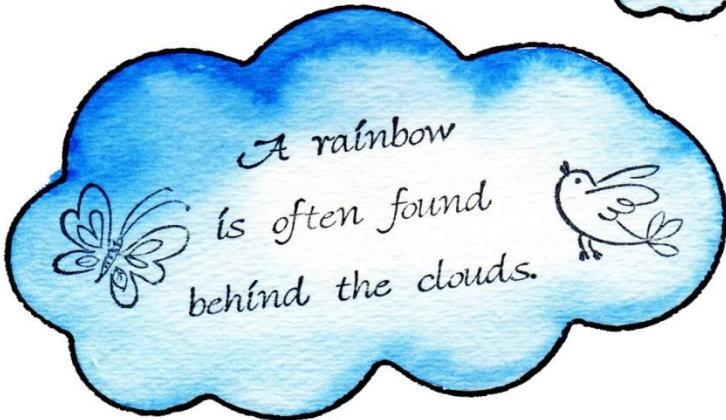 A rainbow
is often found
behind the clouds.